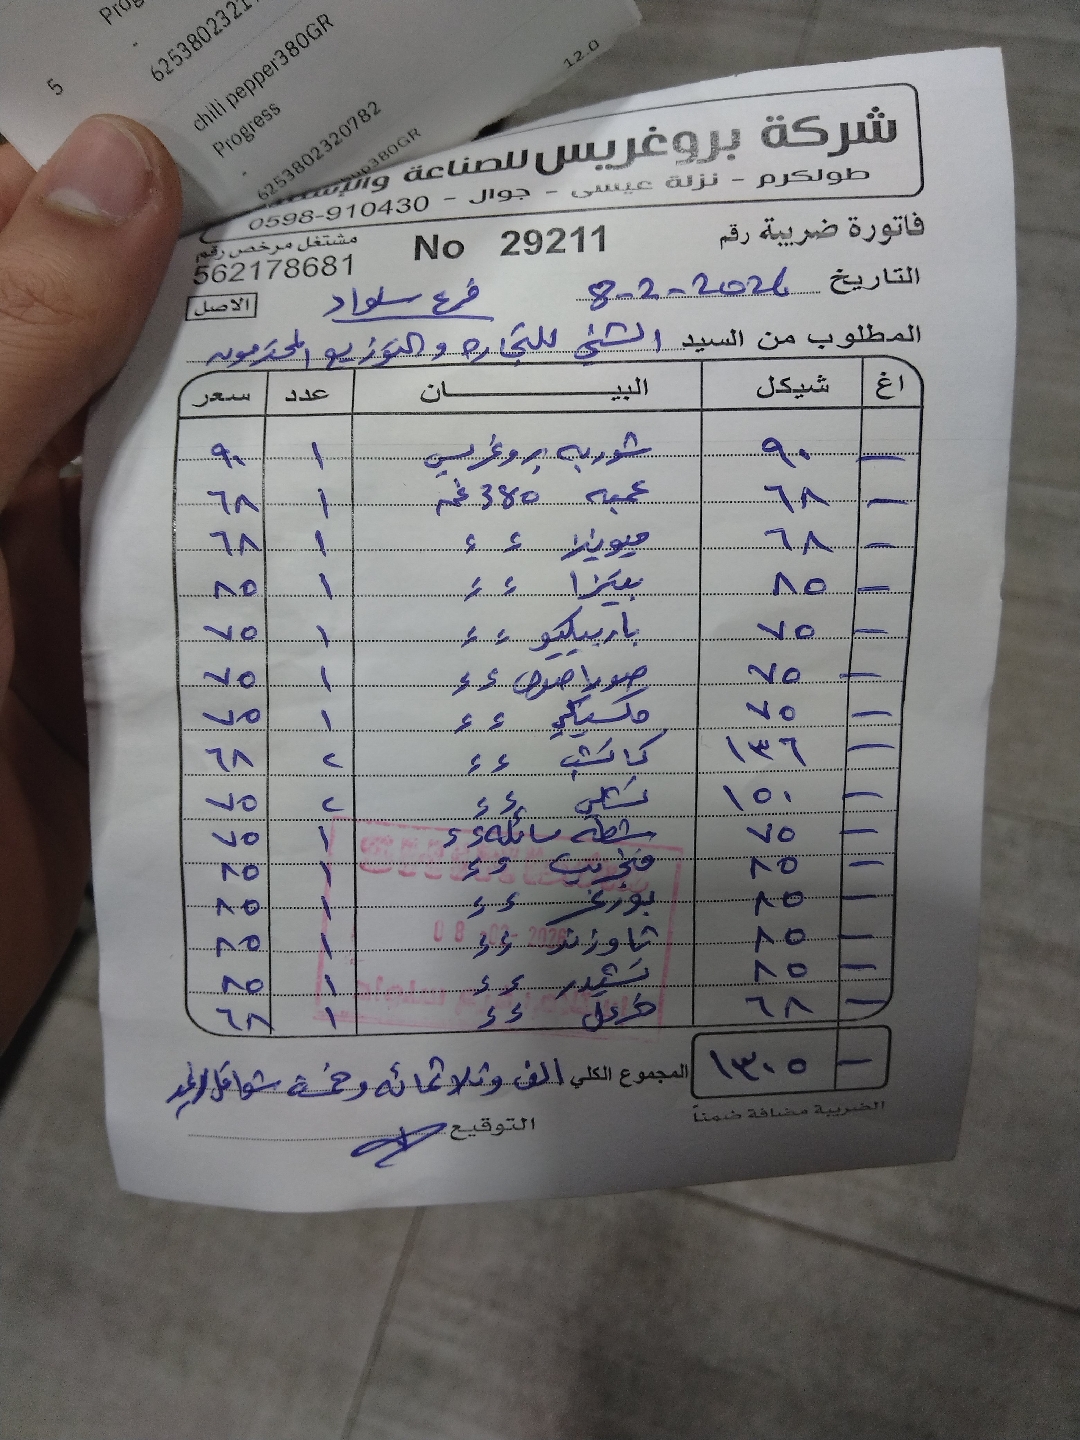 5
6253802321
chili pepper380GR
12.0
Progress
6253802320782
380GR
شركة بروغريس للصناعة
طولكرم - نزلة عيسى - جوال - 0598-910430
فاتورة ضريبة رقم No 29211 مشتغل مرخص رقم
562178681
التاريخ 8-2-2026 فرع سلواد الاصل
المطلوب من السيد الشني للتجاره والتوزيع المحترمون
اغ شيكل البيـــــــــان عدد سعر
— ٩٠ شوربه بروغريس ١ ٩٠
— ٦٨ عمبه 380 غم ١ ٦٨
— ٦٨ ميونيز ء ء ١ ٦٨
— ٨٥ بيتزا ء ء ١ ٨٥
— ٧٥ باربيكيو ء ء ١ ٧٥
— ٧٥ صويا صوص ء ء ١ ٧٥
— ٧٥ مكسيكي ء ء ١ ٧٥
— ١٣٦ كاتشب ء ء ٢ ٦٨
— ١٥٠ تشلي ء ء ٢ ٧٥
— ٧٥ شطه سائله ء ء ١ ٧٥
— ٨٥ ء ء ١ ٨٥
— ٨٥ بورغر ء ء ١ ٨٥
— ٨٥ ثاوزند ء ء ١ ٨٥
— ٨٥ تشيدر ء ء ١ ٨٥
— ٦٨ خردل ء ء ١ ٦٨
— ١٣٠٥ المجموع الكلي الف وثلاثمائه وخمسة شواقل
الضريبة مضافة ضمناً
التوقيع
08 -02- 2026